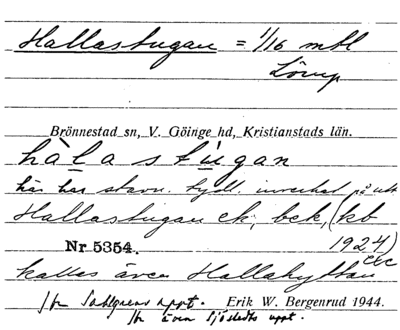 Hallastugan = 1/16 mtl
Lörup
Brönnestad sn, V. Göinge hd, Kristianstads län.
hàlastu̱gan
här har stavn. tydl. inverkat på utt
Hallastugan ek, bek, (kb
Nr 5354. 1924)
kallas även Hallahyttan etc
jfr Sahlgrens uppt. Erik W. Bergenrud 1944.
jfr även Sjöstedts uppt.